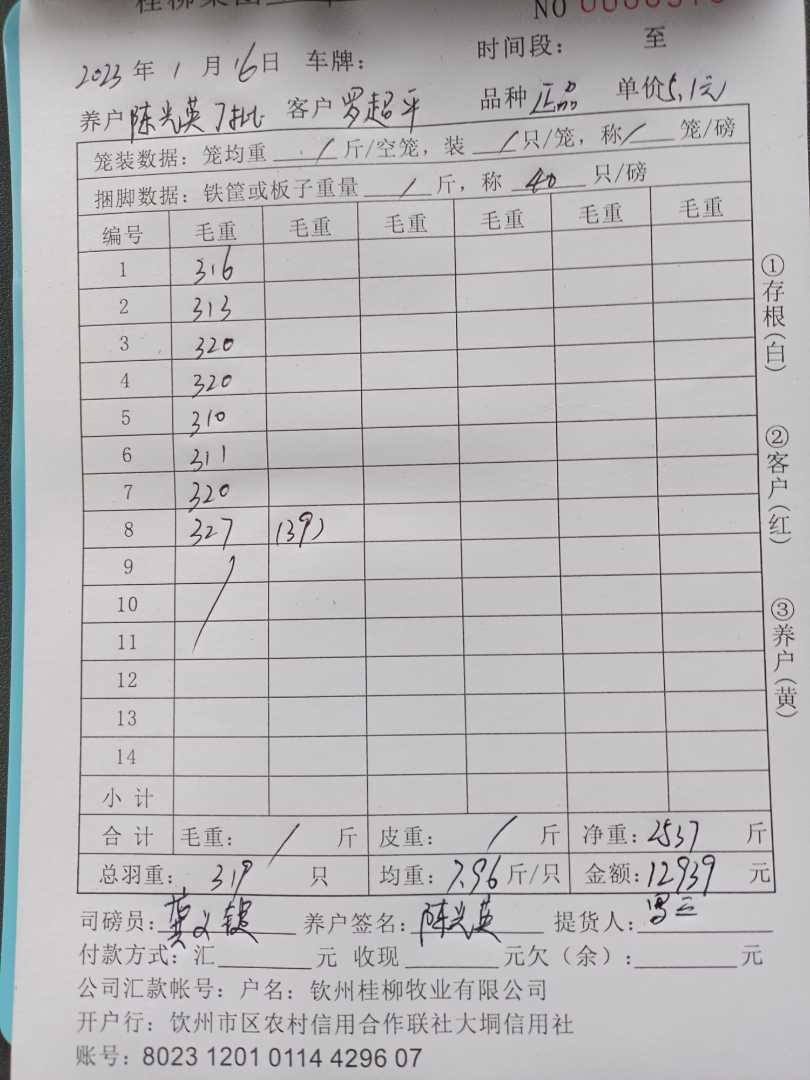 桂柳集团
NO 0000
2023年1月16日 车牌: 时间段: 至
养户陈光英7批 客户罗超平 品种正品 单价5.1元
笼装数据: 笼均重 / 斤/空笼, 装 / 只/笼, 称 / 笼/磅
捆脚数据: 铁筐或板子重量 / 斤, 称 40 只/磅
编号 毛重 毛重 毛重 毛重 毛重 毛重
1 316
2 313
3 320
4 320
5 310
6 311
7 320
8 327 (39)
9
10
11
12
13
14
小计
合计 毛重: / 斤 皮重: / 斤 净重: 2537 斤
总羽重: 319 只 均重: 7.96 斤/只 金额: 12939 元
司磅员: 养户签名: 陈光英 提货人:
付款方式: 汇 元 收现 元欠(余): 元
公司汇款帐号: 户名: 钦州桂柳牧业有限公司
开户行: 饮州市区农村信用合作联社大垌信用社
账号: 8023 1201 0114 4296 07
①存根(白)
②客户(红)
③养户(黄)